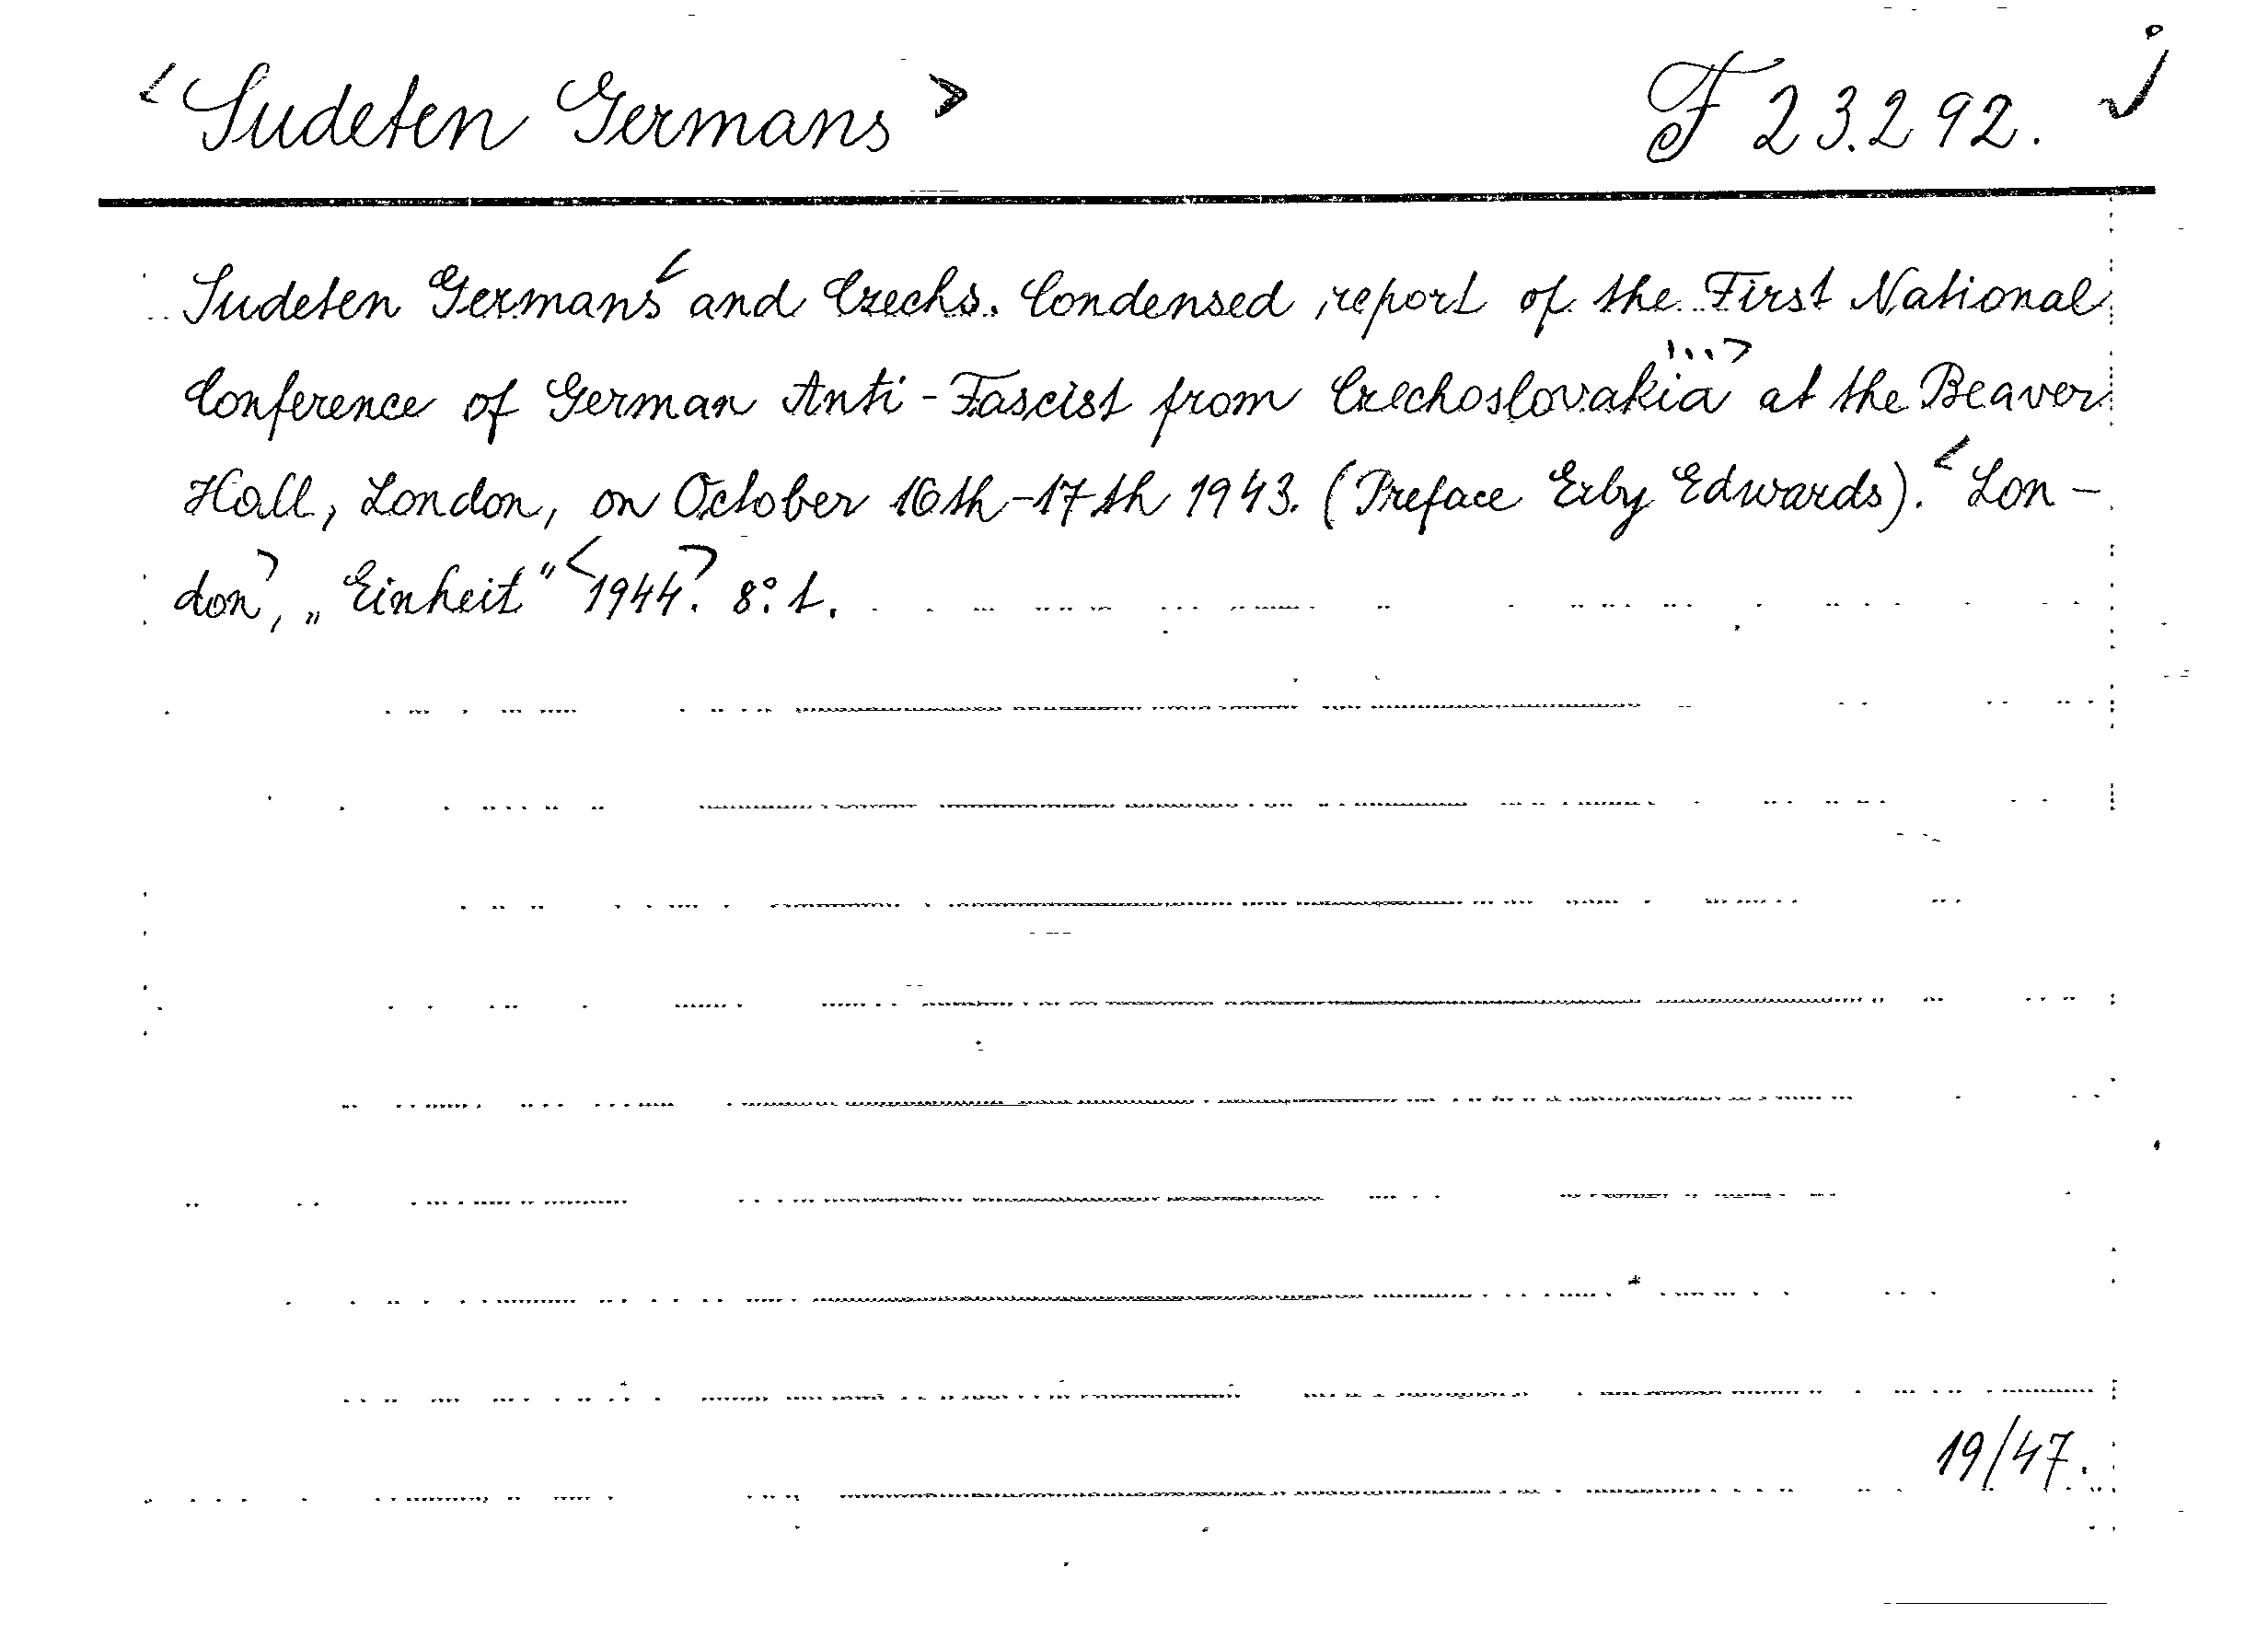 < Sudeten Germans > F 23.292.
Sudeten Germans < and Czechs. Condensed report of the First National
Conference of German Anti-Fascist from Czechoslovakia ...> at the Beaver
Hall, London, on October 16th-17th 1943. (Preface Erby Edwards). < Lon-
don >, „Einheit" < 1944 >. 8° t.
19/47.